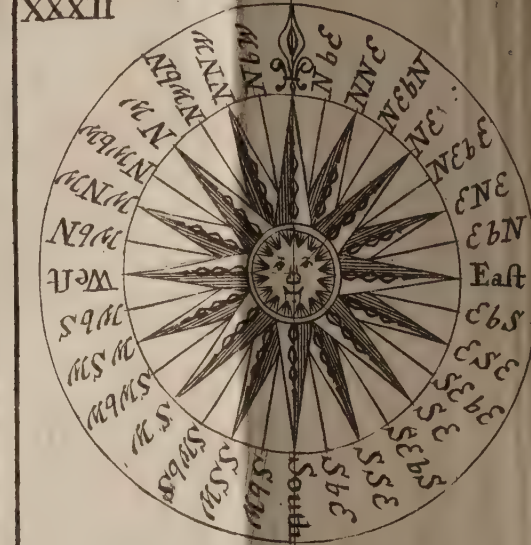 XXXII
N b E
N N E
N E b N
N E
N E b E
E N E
E b N
Eaſt
E b S
E S E
S E b E
S E
S E b S
S S E
S b E
South
S b W
S S W
S W b S
S W
S W b W
W S W
W b S
Weſt
W b N
W N W
N W b W
N W
N W b N
N N W
N b W